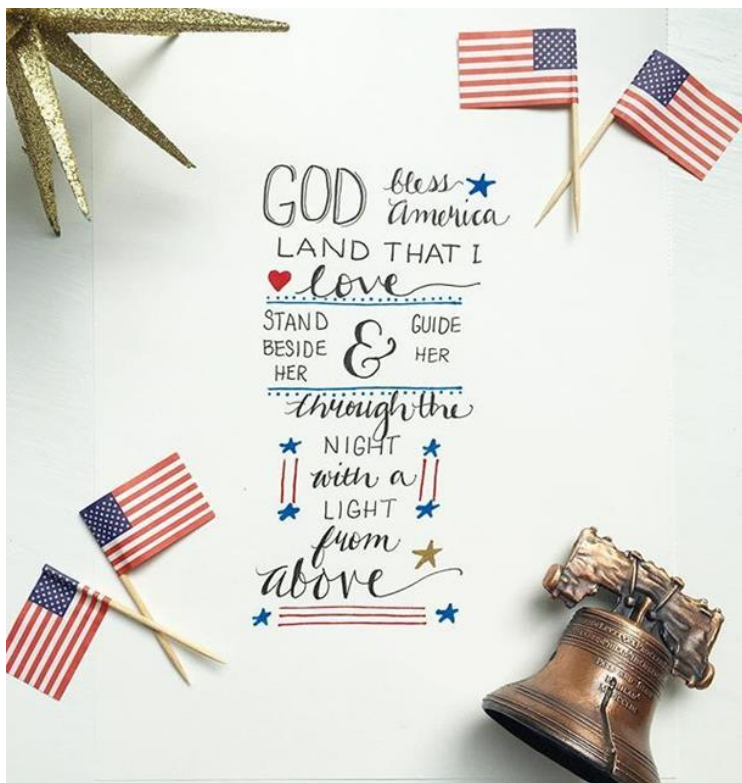 GOD bless
America
LAND THAT I
love
STAND
BESIDE
HER
&
GUIDE
HER
through the
NIGHT
with a
LIGHT
from
above